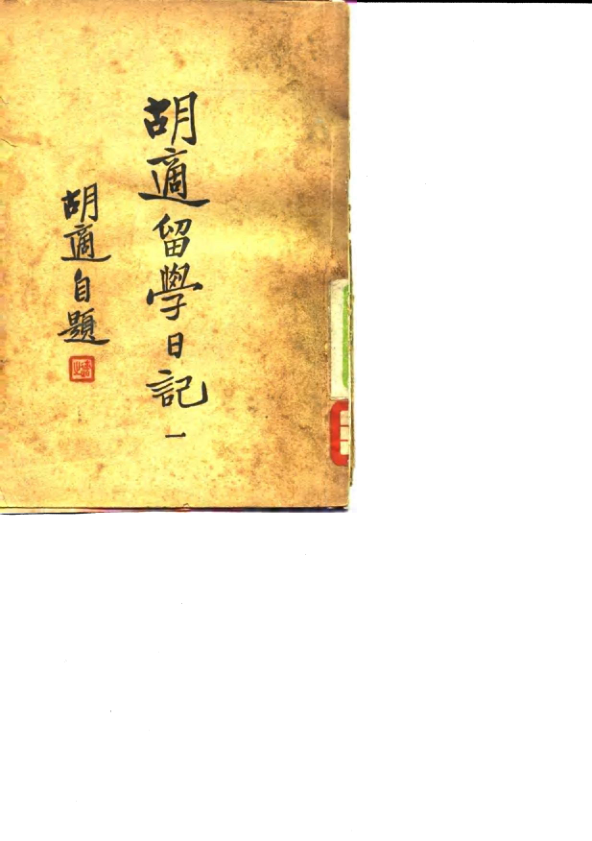 胡適留學日記
一
胡適自題